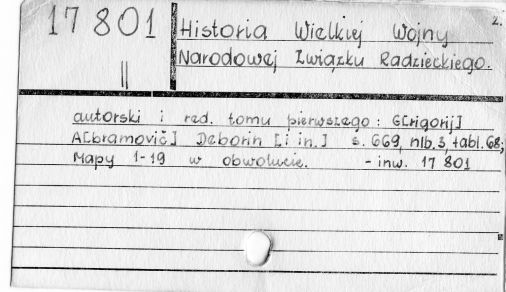 2.
17 801
II
Historia Wielkiej Wojny
Narodowej Związku Radzieckiego.
autorski i red. tomu pierwszego: G[rigorij]
A[bramovič] Deborin [i in.] s. 669, nlb. 3, tabl. 68;
Mapy 1-19 w obwolucie. - inw. 17 801